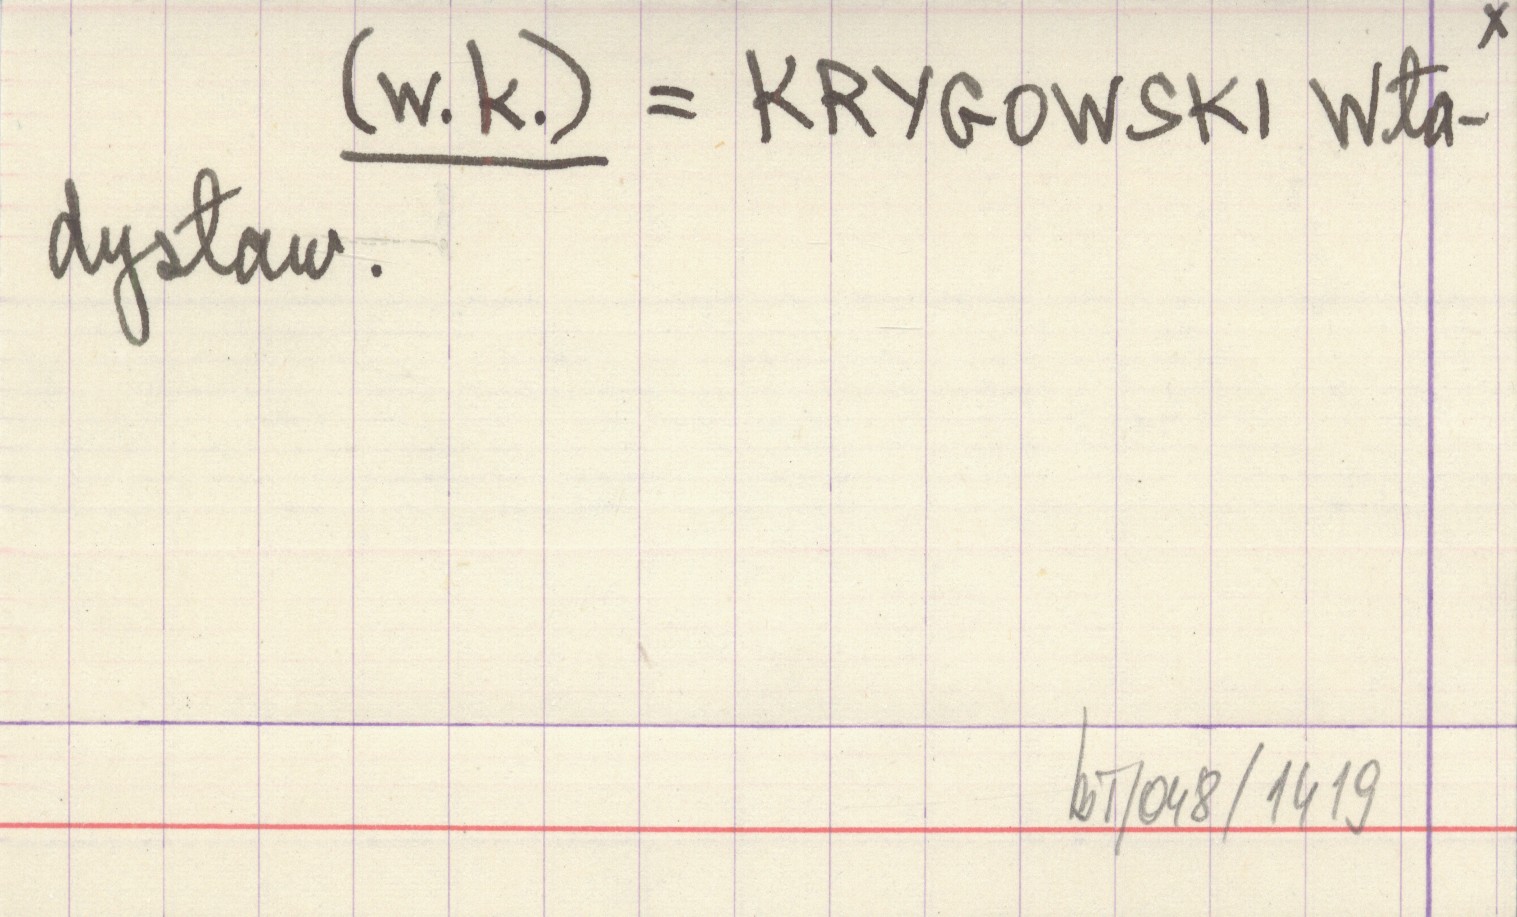 x
(w.k.) = KRYGOWSKI Wła-
dysław.
/048/1419